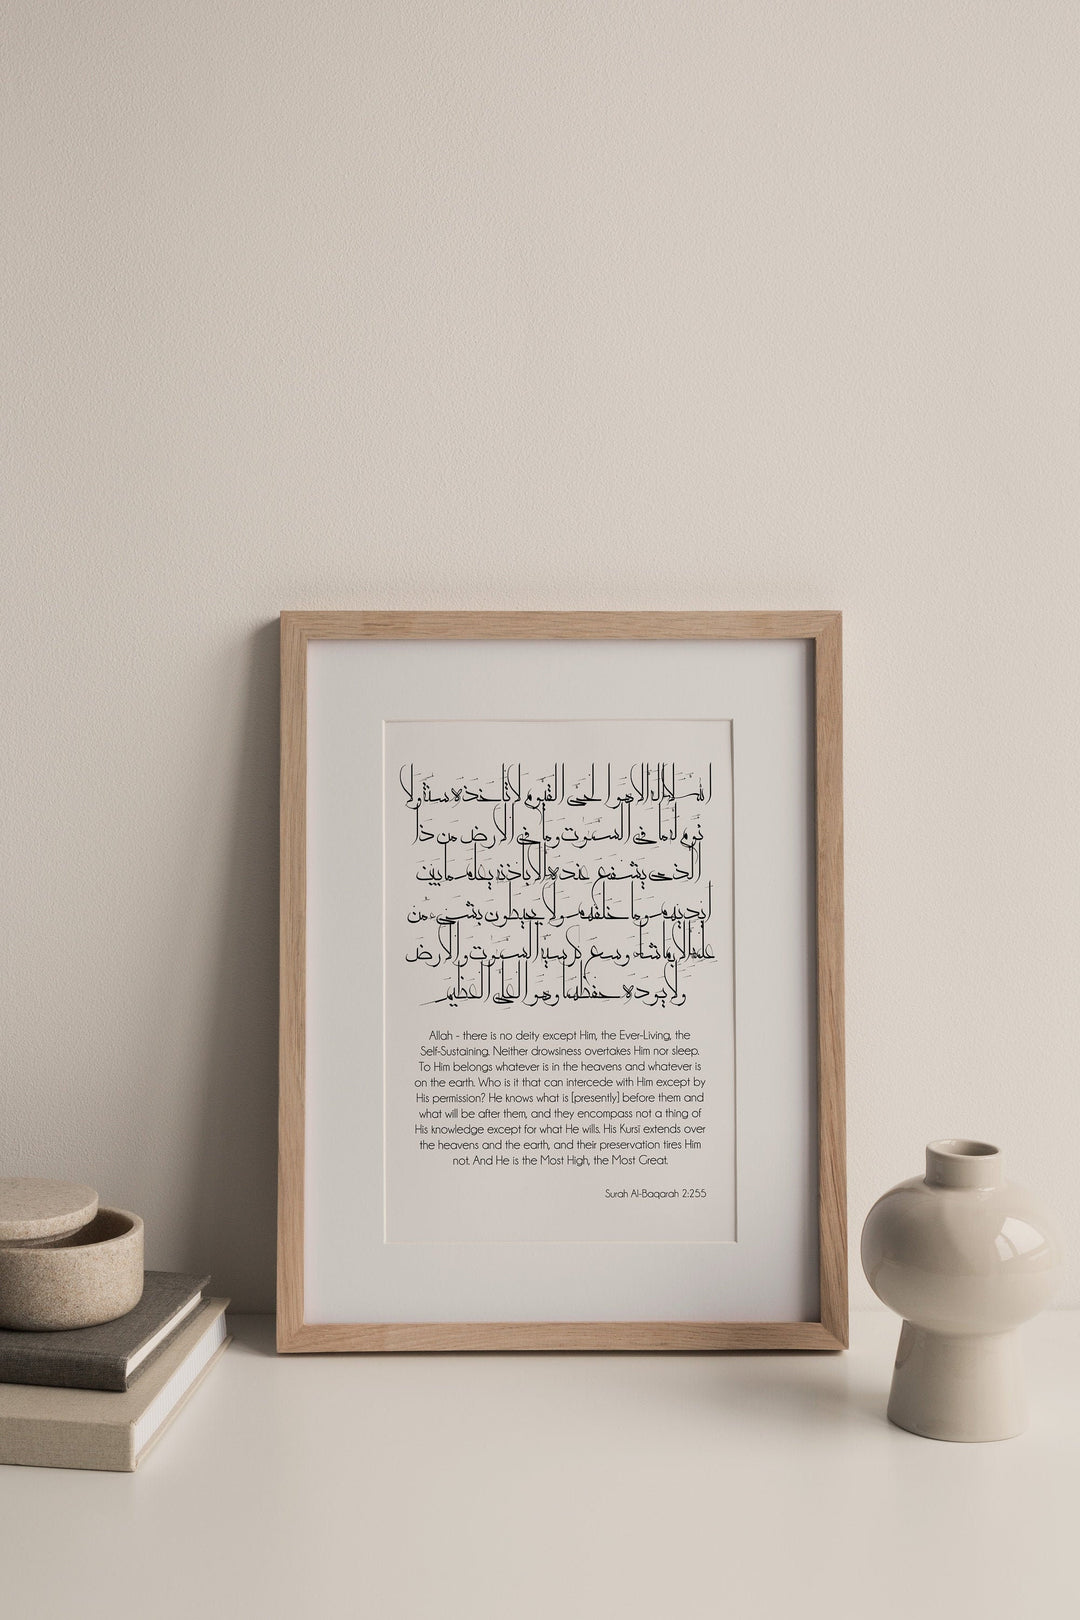 الله لا إله إلا هو الحي القيوم لا تأخذه سنة ولا
نوم له ما في السموت وما في الأرض من ذا
الذي يشفع عنده إلا بإذنه يعلم ما بين
أيديهم وما خلفهم ولا يحيطون بشيء من
علمه إلا بما شاء وسع كرسيه السموت والأرض
ولا يوده حفظهما وهو العلي العظيم
Allah - there is no deity except Him, the Ever-Living, the
Self-Sustaining. Neither drowsiness overtakes Him nor sleep.
To Him belongs whatever is in the heavens and whatever is
on the earth. Who is it that can intercede with Him except by
His permission? He knows what is [presently] before them and
what will be after them, and they encompass not a thing of
His knowledge except for what He wills. His Kursi extends over
the heavens and the earth, and their preservation tires Him
not. And He is the Most High, the Most Great.
Surah Al-Baqarah 2:255